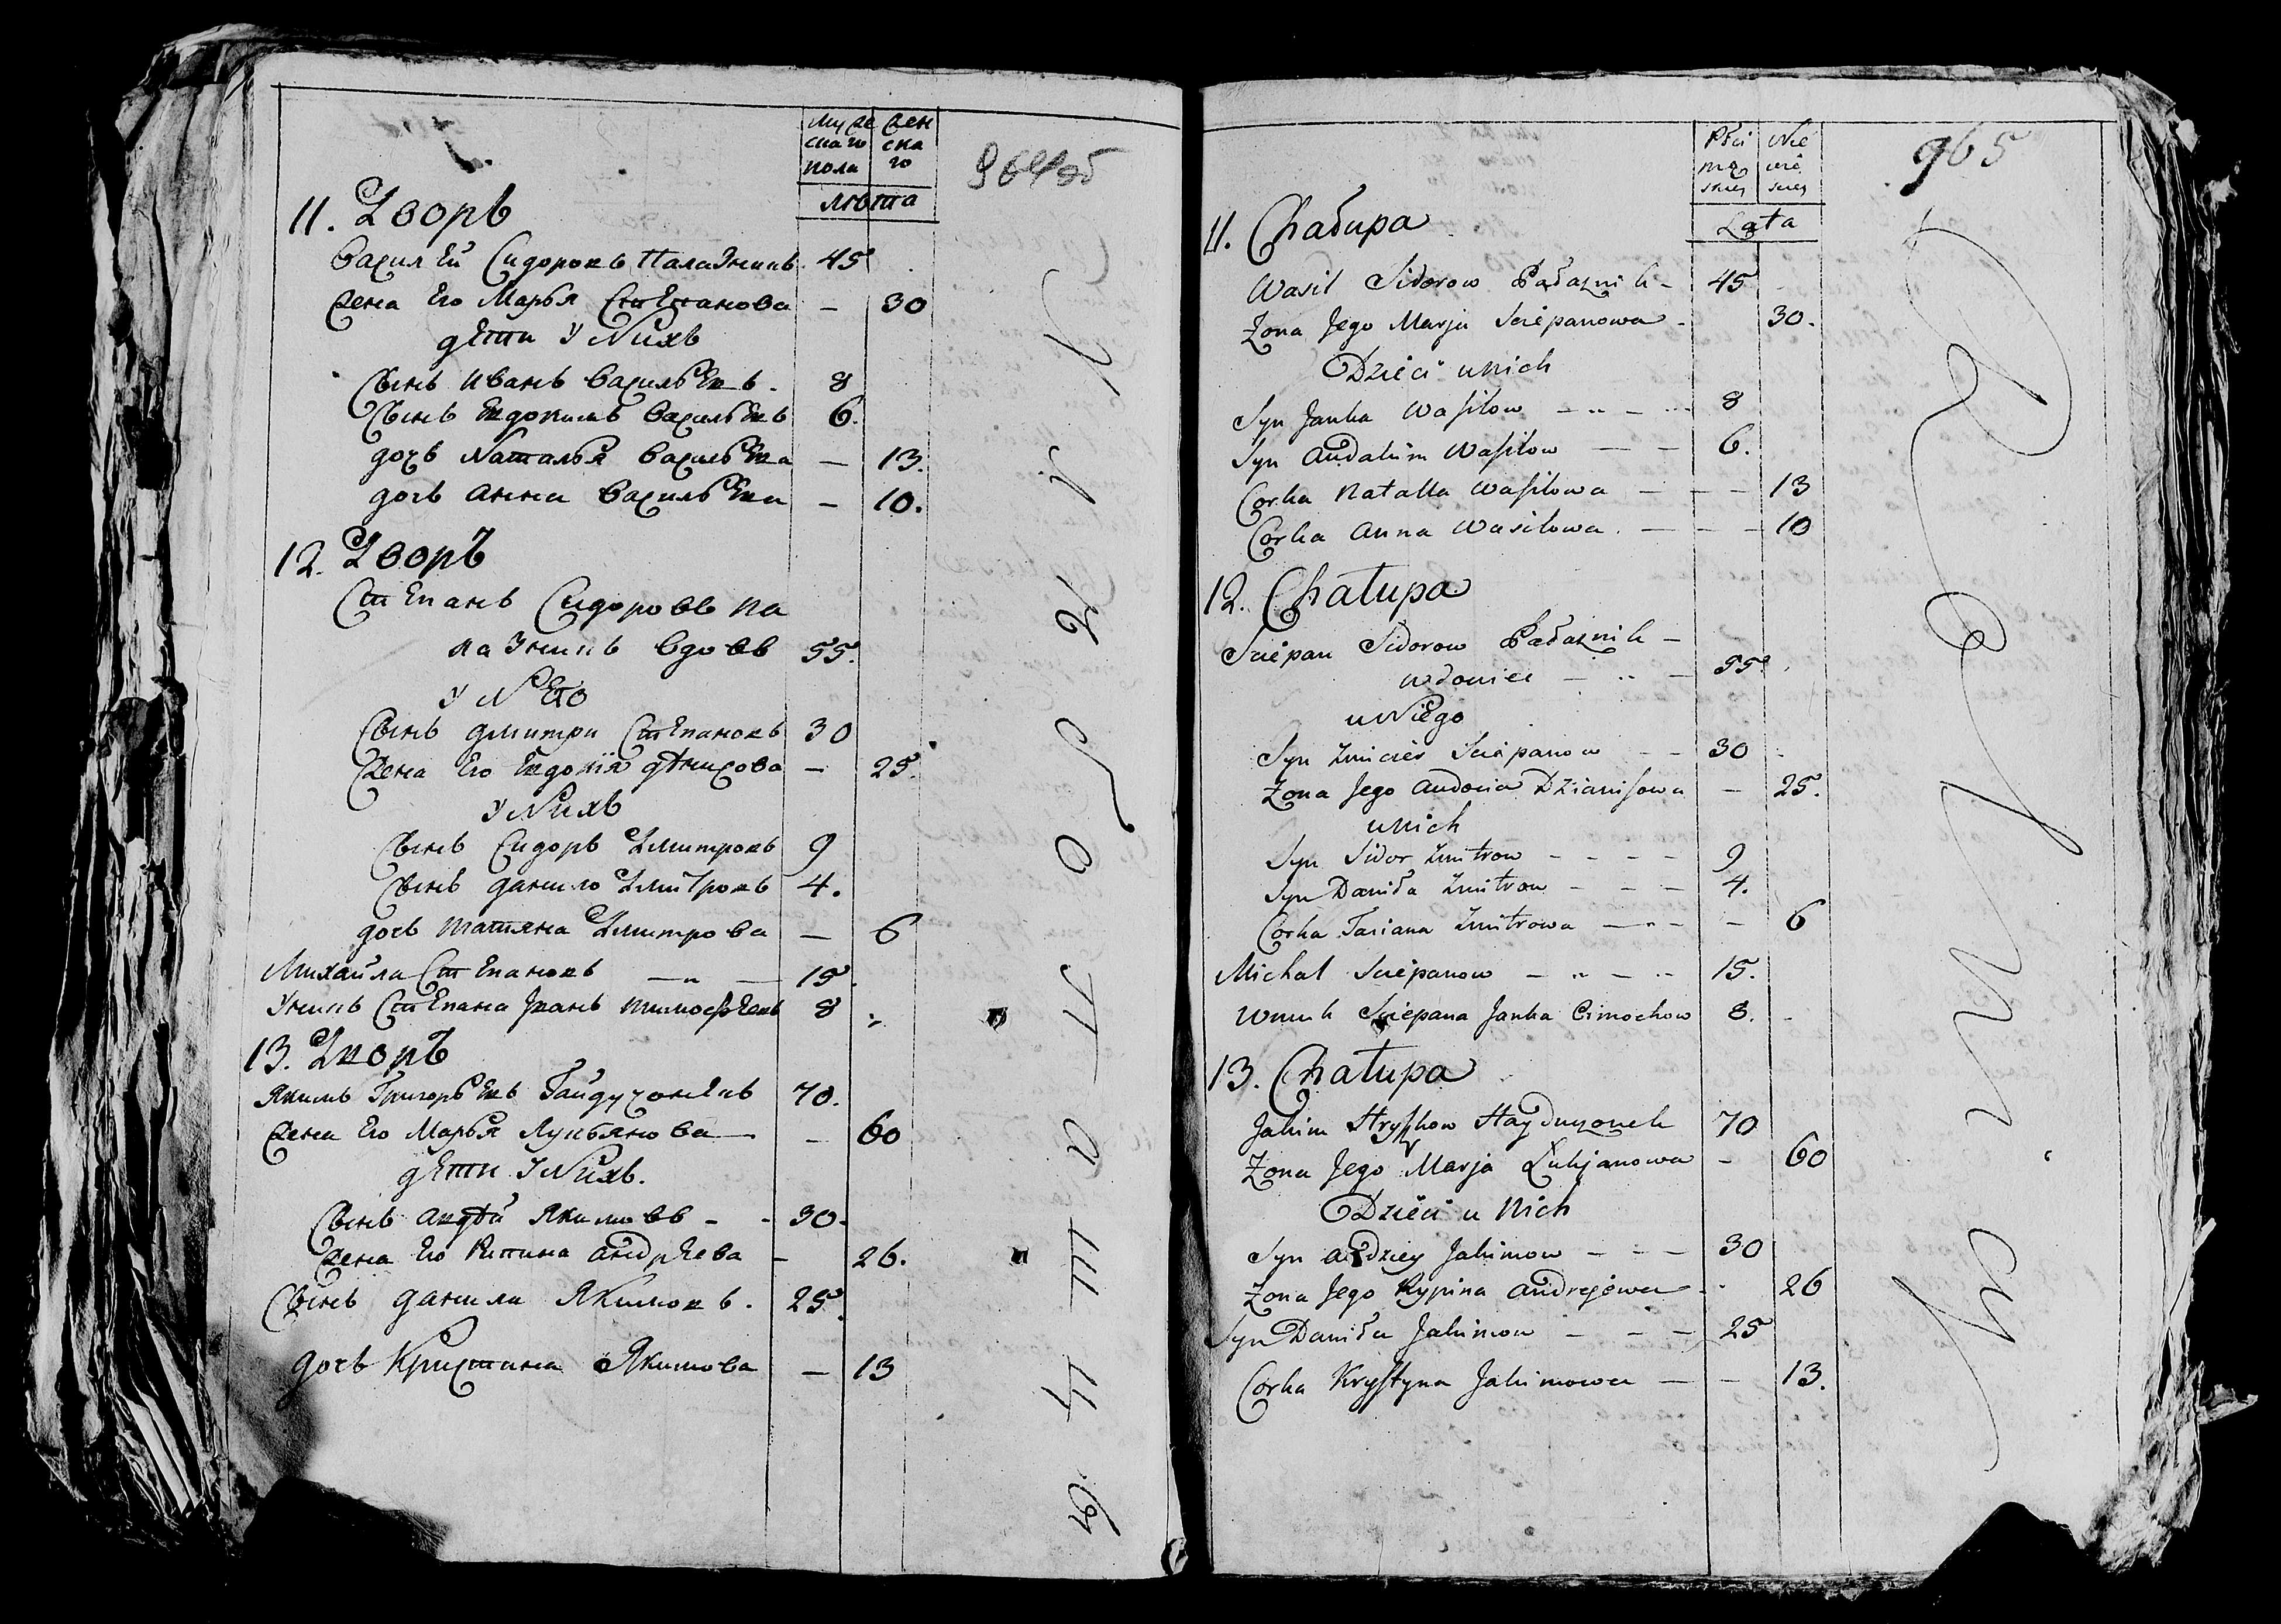 Муже скаго пола
Жен ска го
лѣта
964об
11. Дворъ
Василей Сидоровъ Палазникъ 45
Жена Его Марья Степанова — 30
дети у Нихъ
Сынъ Иванъ Васильевъ. 8
Сынъ Евдокимъ Васильевъ 6.
дочь Наталья Васильева — 13.
дочь Анна Васильева — 10.
12. Дворъ
Степанъ Сидоровъ Па
лазникъ вдовъ 55.
у Него
Сынъ дмитри Степановъ 30
Жена Его Евдокія дѣнисова — 25.
у Нихъ
Сынъ Сидоръ Дмитровъ 9
Сынъ данило Дмитровъ 4.
дочь татьяна Дмитрова — 6
Михайла Степановъ — „ — 15.
Унукъ Степана Иванъ тимофеевъ 8
13. Дворъ
Якимъ Григорьевъ Гайдучонекъ 70.
Жена Его Марья Лукьянова — — 60
дети у Нихъ.
Сынъ андрѣй Якимовъ - - 30.
Жена Его Кипина андреева — 26.
Сынъ данила Якимовъ. 25.
дочь Кристина Якимова — 13
Płci mę skiey
Nie wie skiey
Lata
965
11. Chałupa
Wasil Sidorow Pałaznik - 45
Zona Jego Marja Sciepanowa - 30.
Dzieci u Nich
Syn Janka Wasilow 8
Syn Audakim Wasilow — — 6.
Corka Natalla Wasilowa — — — 13
Corka Anna Wasilowa. — — — 10
12. Chałupa
Sciepan Sidorow Pałaznik -
wdowiec 55.
u Niego
Syn Zmicier Sciepanow - - 30
Zona Jego Audocia Dzianisowa — 25.
u Nich
Syn Sidor Zmitrow - - - - 9
Syn Daniła Zmitrow - - - 4.
Corka Taciana Zmitrowa — - - 6
Michał Sciepanow 15.
Wnuk Sciepana Janka Cimochow 8.
13. Chałupa
Jakim Hryhkow Hayduczonek 70
Zona Jego Marja Łukjanowa - 60
Dzieci u Nich
Syn Andziey Jakimow - - - 30
Zona Jego Kypina Andrejewa - 26
Syn Daniła Jakimow - - - 25
Corka Krystyna Jakimowa — - 13.